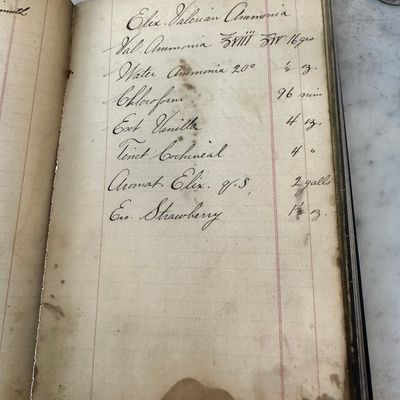 Elix. Valerian Ammonia
Val. Ammonia ℥viii ʒiv 16 grs
Water Ammonia 20° ½ oz.
Chloroform 96 min
Ext Vanilla 4 oz.
Tinct Cochineal 4 "
Aromat. Elix. q.s 2 galls
Strawberry 1½ oz.